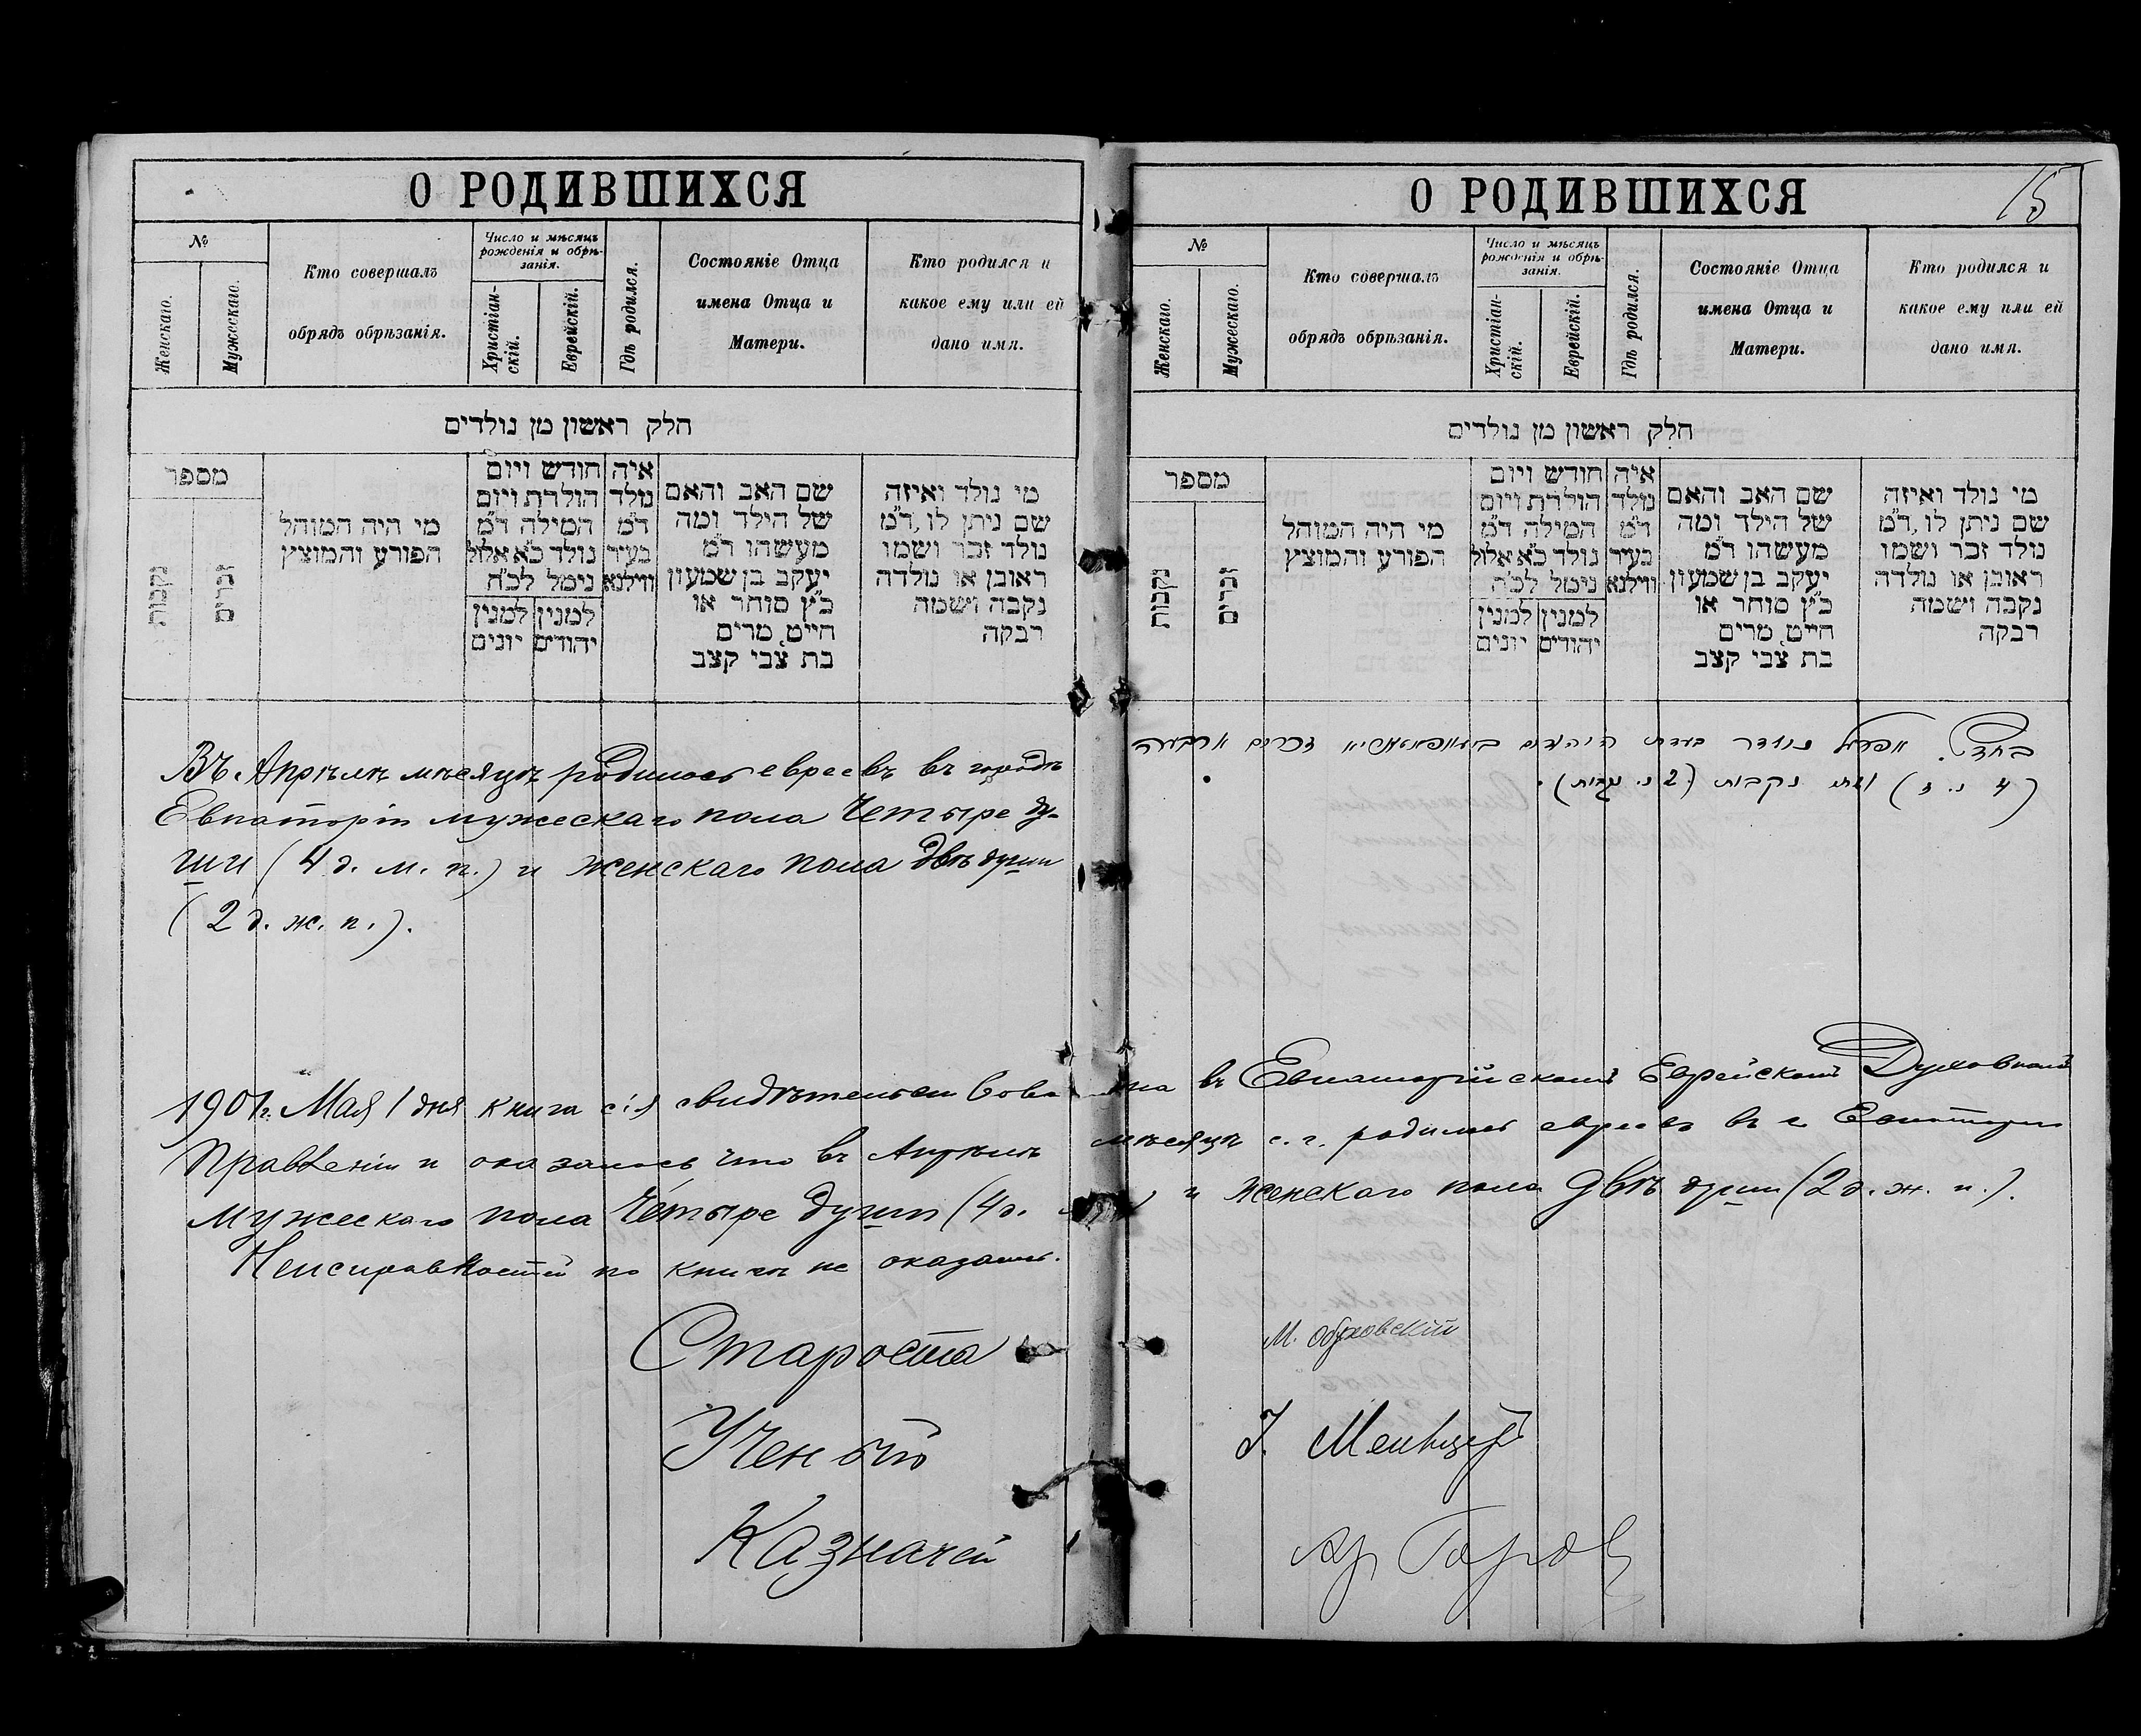 О РОДИВШИХСЯ
№
Женскаго.
Мужескаго.
Кто совершалъ
обрядъ обрѣзанія.
Число и мѣсяцъ
рожденія и обрѣ-
занія.
Христіан-
скій.
Еврейскій.
Гдѣ родился.
Состояніе Отца
имена Отца и
Матери.
Кто родился и
какое ему или ей
дано имя.
חלק ראשון מן נולדים
מספר
נקבות
זכרים
מי היה המוהל
הפורע והמוצץ
חודש ויום
הולדת ויום
המילה ד״מ
נולד כ״א אלול
נימל לכ״ח
למנין
יהודים
למנין
יונים
איה
נולד
ד״מ
בעיר
ווילנא
שם האב והאם
של הילד ומה
מעשהו ד״מ
יעקב בן שמעון
כ״ץ סוחר או
חייט, מרים
בת צבי קצב
מי נולד ואיזה
שם ניתן לו, ד״מ
נולד זכר ושמו
ראובן או נולדה
נקבה ושמה
רבקה
Въ Апрѣлѣ мѣсяцѣ родилось евреевъ въ городѣ
Евпаторіи мужескаго пола Четыре ду-
ши (4 д. м. п.) и женскаго пола двѣ души
(2 д. ж. п.).
О РОДИВШИХСЯ
15
№
Женскаго.
Мужескаго.
Кто совершалъ
обрядъ обрѣзанія.
Число и мѣсяцъ
рожденія и обрѣ-
занія.
Христіан-
скій.
Еврейскій.
Гдѣ родился.
Состояніе Отца
имена Отца и
Матери.
Кто родился и
какое ему или ей
дано имя.
חלק ראשון מן נולדים
מספר
נקבות
זכרים
מי היה המוהל
הפורע והמוצץ
חודש ויום
הולדת ויום
המילה ד״מ
נולד כ״א אלול
נימל לכ״ח
למנין
יהודים
למנין
יונים
איה
נולד
ד״מ
בעיר
ווילנא
שם האב והאם
של הילד ומה
מעשהו ד״מ
יעקב בן שמעון
כ״ץ סוחר או
חייט, מרים
בת צבי קצב
מי נולד ואיזה
שם ניתן לו, ד״מ
נולד זכר ושמו
ראובן או נולדה
נקבה ושמה
רבקה
בחדש אפריל היהודים זכרים ארבעה
(4 נ. ז) נקבות (2 נ.
1901 г. Мая 1 дня книга сія свидѣтельствована въ Евпаторійскомъ Еврейскомъ Духовномъ
Правленіи и оказалось что въ Апрѣлѣ мѣсяцѣ с. г. родилось евреевъ въ г. Евпаторіи
мужескаго пола Четыре души (4 д. и женскаго пола двѣ души (2 д. ж. п.).
Неисправностей по книгѣ не оказалось.
Староста М. Обуховскій
Ученый
Казначей